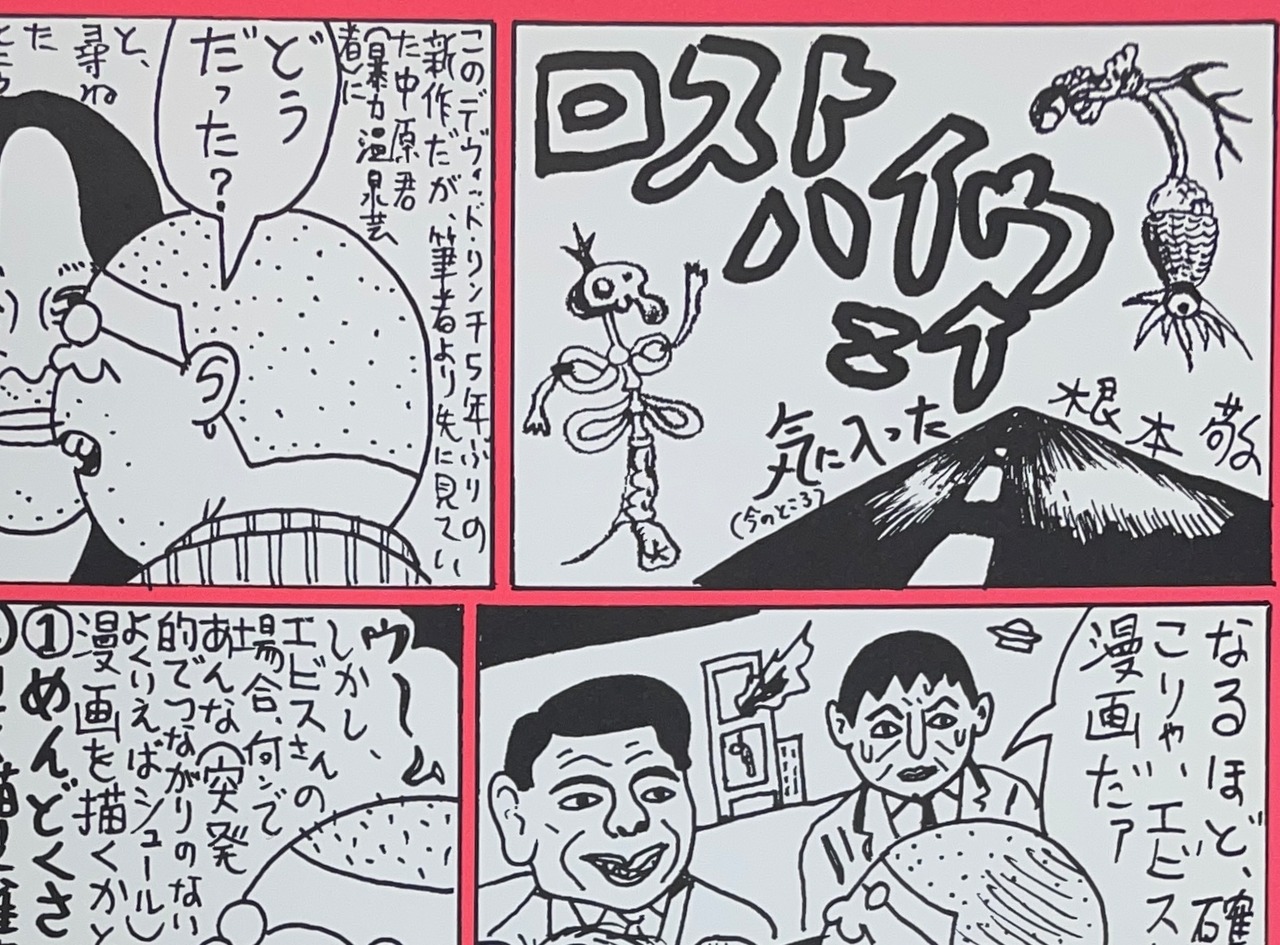 ロスト
ハイウ
エイ
根本敬
気に入った
(今のところ)
このデヴィッド・リンチ5年ぶりの
新作だが、筆者より先に見てい
た中原君
(暴力温泉芸
者)に
どう
だった?
と、
尋ね
た
なるほど、確
こりゃ、エビス
漫画だァ
ウーム
しかし、
エビスさんの
場合、何ンで
あんな(突発
的でつながりのない
よくいえばシュール
漫画を描くかと
①めんどくさ